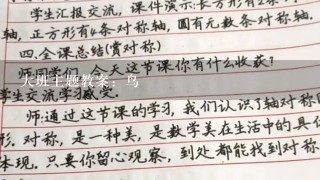 学生汇报交流,课件演示:长方形有2条对
轴,正方形有4条对称轴,圆有无数条对称轴.
四.全课总结(赏对称)
师:同学们,今天这节课你有什么收获?
大班主题教案:鸟
学生交流学习
师:通过这节课的学习,我们认识了轴对称图
形.对称,是一种美,是数学美在生活中的具体
体现.只要你留心观察,到处都能找到对称